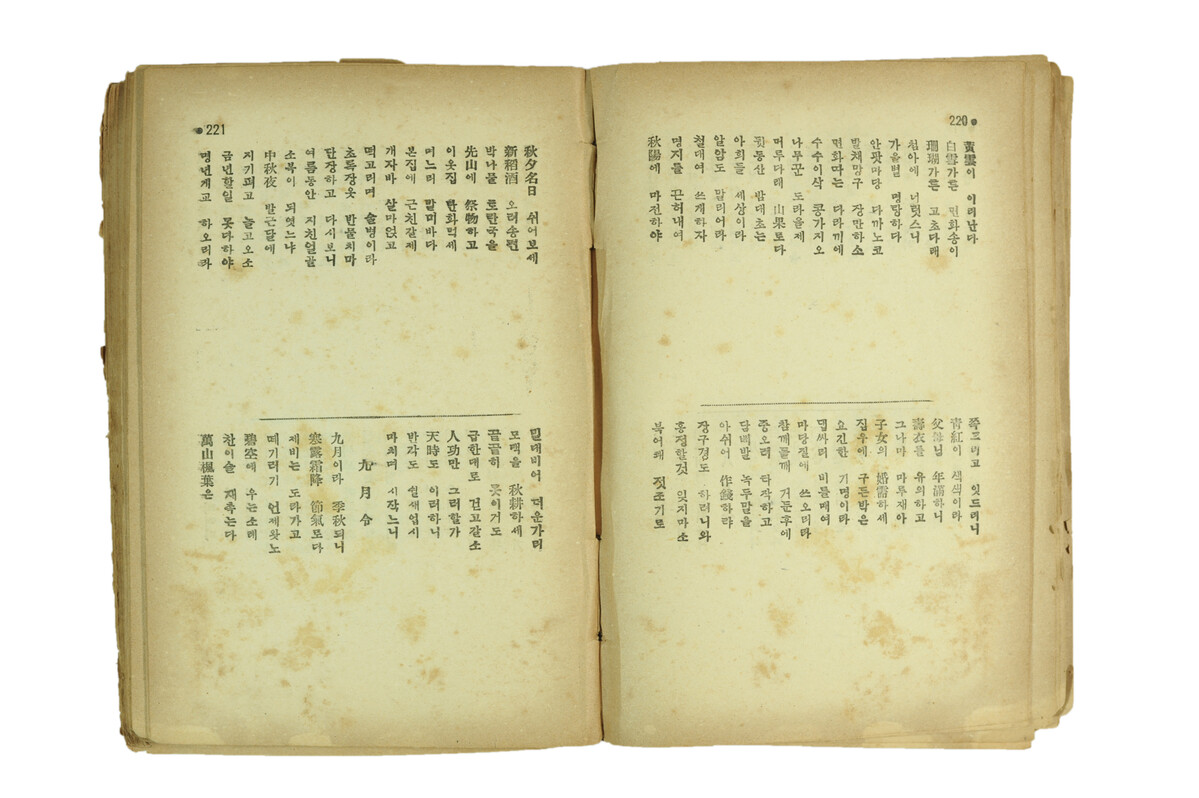 220
黃雲이 이러난다
白雪가튼 면화송이
珊瑚가튼 고초다래
첨아에 너럿스니
가을볏 명랑하다
안팟마당 다까노코
발채망구 장만하소
면화따는 다락끼에
수수이삭 콩가지오
나무군 도라올제
머루다래 山果로다
뒷동산 밤대초는
아희들 세상이라
알암도 말리어라
철대여 쓰개하자
명지를 끈허내여
秋陽에 마전하야
쪽드리고 잇드리니
靑紅이 색색이라
父母님 年滿하니
壽衣를 유의하고
그나마 마루재아
子女의 婚需하세
집우에 구든박은
요긴한 기명이라
댑싸리 비를매여
마당질에 쓰오리라
참깨들깨 거둔후에
중오려 타작하고
담배발 녹두말을
아쉬어 作錢하랴
장구경도 하려니와
흥정할것 잇지마소
북어쾌 젓조기로
221
秋夕名日 쉬어보세
新稻酒 오려송편
박나물 토란국을
先山에 祭物하고
이웃집 난화먹세
며느리 말미바다
본집에 근친갈제
개자바 살마얹고
떡고리며 술병이라
초록장옷 반물치마
단장하고 다시보니
여름동안 지친얼골
소복이 되엿느냐
中秋夜 발근달에
지기펴고 놀고오소
금년할일 못다하야
명년게교 하오리라
밀대비어 더운가리
모맥을 秋耕하세
끝끝히 못이거도
급한대로 걷고갈소
人功만 그러할가
天時도 이러하니
반각도 쉴새업시
마치며 시작느니
九月令
九月이라 季秋되니
寒露霜降 節氣로다
제비는 도라가고
떼기러기 언제왓노
碧空에 우는소래
찬이슬 재촉는다
萬山楓葉은